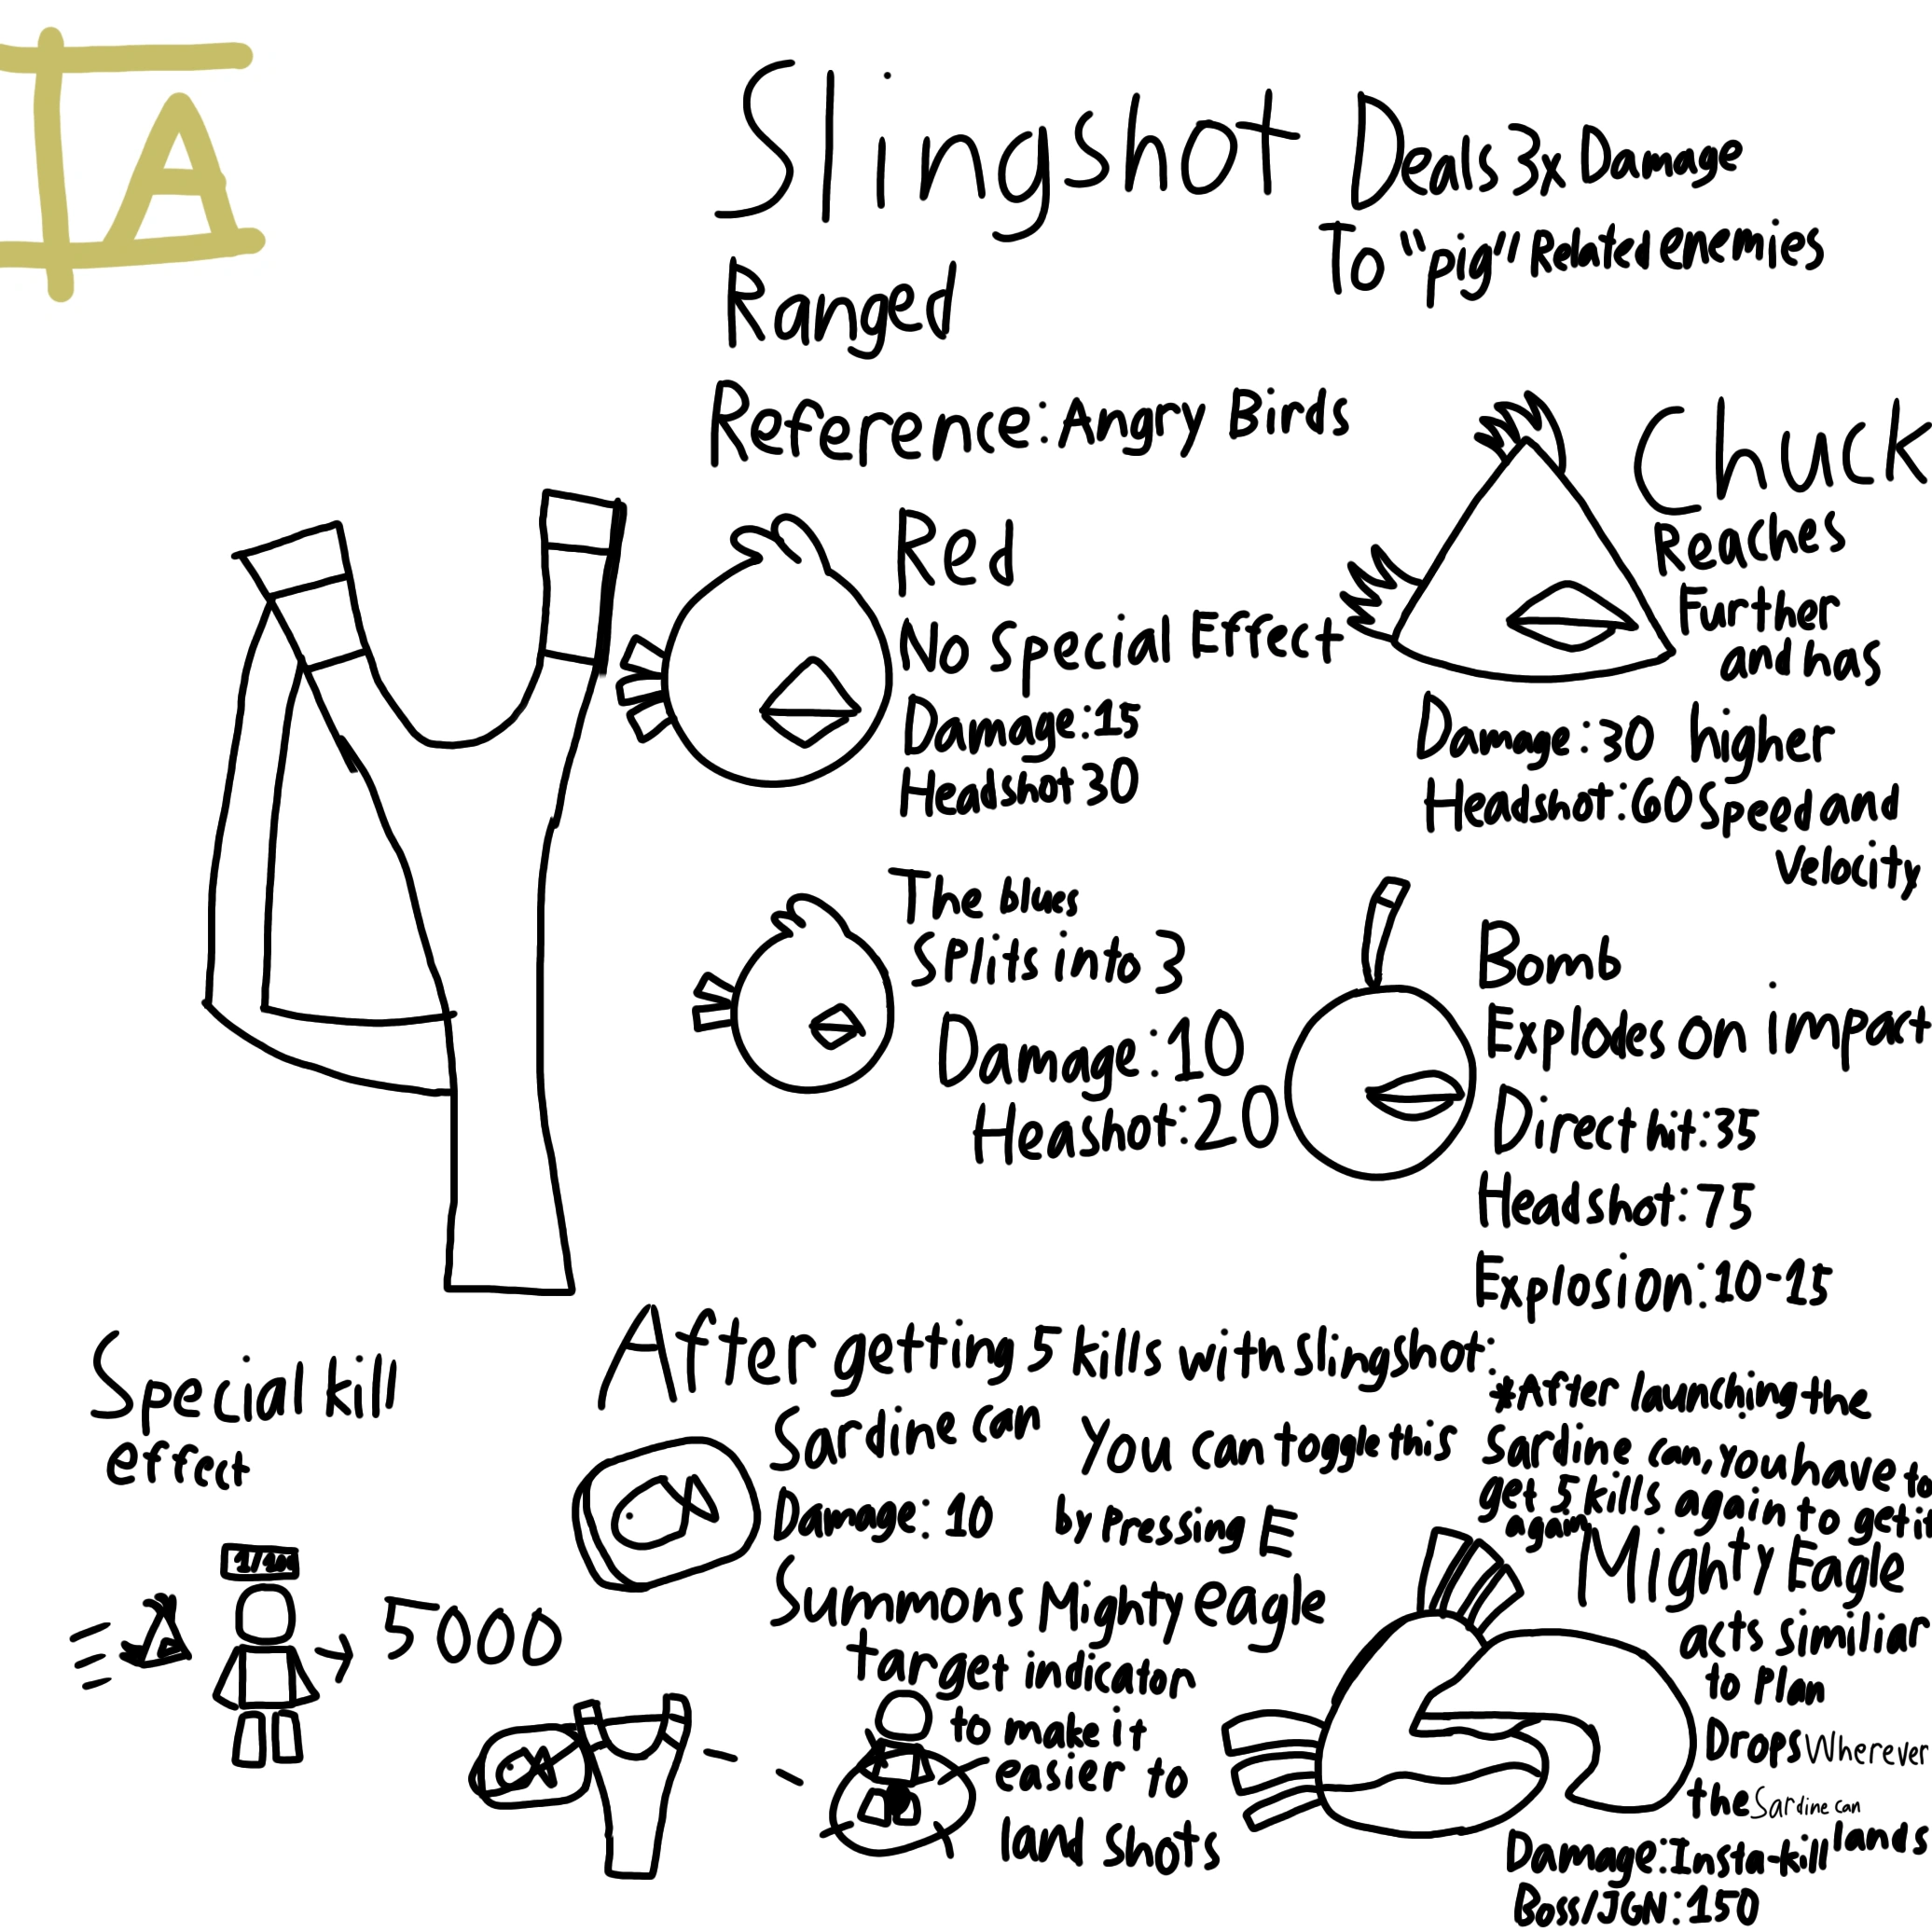 TA
Slingshot
Deals 3x Damage
To "pig" Related enemies
Ranged
Reference: Angry Birds
Red
No Special Effect
Damage: 15
Headshot 30
Chuck
Reaches
Further
and has
higher
Speed and
Velocity
Damage: 30
Headshot: 60
The blues
Splits into 3
Damage: 10
Heashot: 20
Bomb
Explodes on impact
Direct hit: 35
Headshot: 75
Explosion: 10-15
Special kill
effect
5000
After getting 5 kills with slingshot:
Sardine can
Damage: 10
You can toggle this
by Pressing E
Summons Mighty eagle
target indicator
to make it
easier to
land shots
*After launching the
Sardine can, you have to
get 5 kills again to get it
again
Mighty Eagle
acts similiar
to Plan
Drops Wherever
the Sardine can
lands
Damage: Insta-kill
Boss/JGN: 150